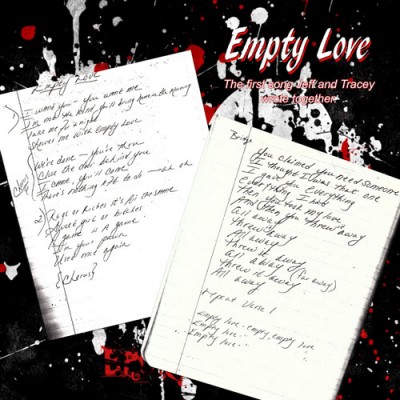 Empty Love
The first song Jeff and Tracey
wrote together
Empty Love
1) I want you - you want me
Take me for a night
Leave me with Empty Love
Chorus
We're done - you're thru
Close the door behind you
I came, you'll come
There's nothing left to do
2) Rags or Riches it's all the same
A game is a game
I'm your pawn
again
{Chorus}
Bridge
You claimed you need someone
I thought I was that one
I gave you everything
Everything I had
Then you took my love
And then you threw it away
All away
Threw it away
All away
Threw it away
All away (Far away)
Threw it away
All away
Repeat Verse 1
Empty love - empty, empty love
Empty love
Empty love